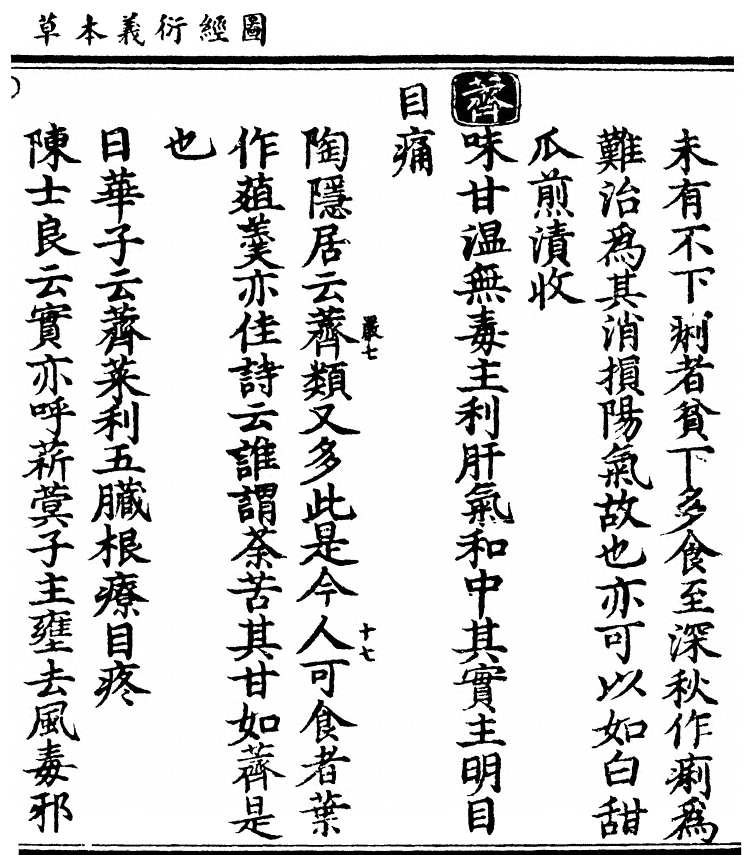 圖經衍義本草
未有不下痢者貧下多食至深秋作痢爲
難治爲其消損陽氣故也亦可以如白甜
瓜煎漬收
薺
味甘温無毒主利肝氣和中其實主明目
目痛
陶隱居云薺類又多此是今人可食者葉
作菹羹亦佳詩云誰謂荼苦其甘如薺是
也
日華子云薺菜利五臟根療目疼
陳士良云實亦呼菥蓂子主壅去風毒邪
嚴七
十七